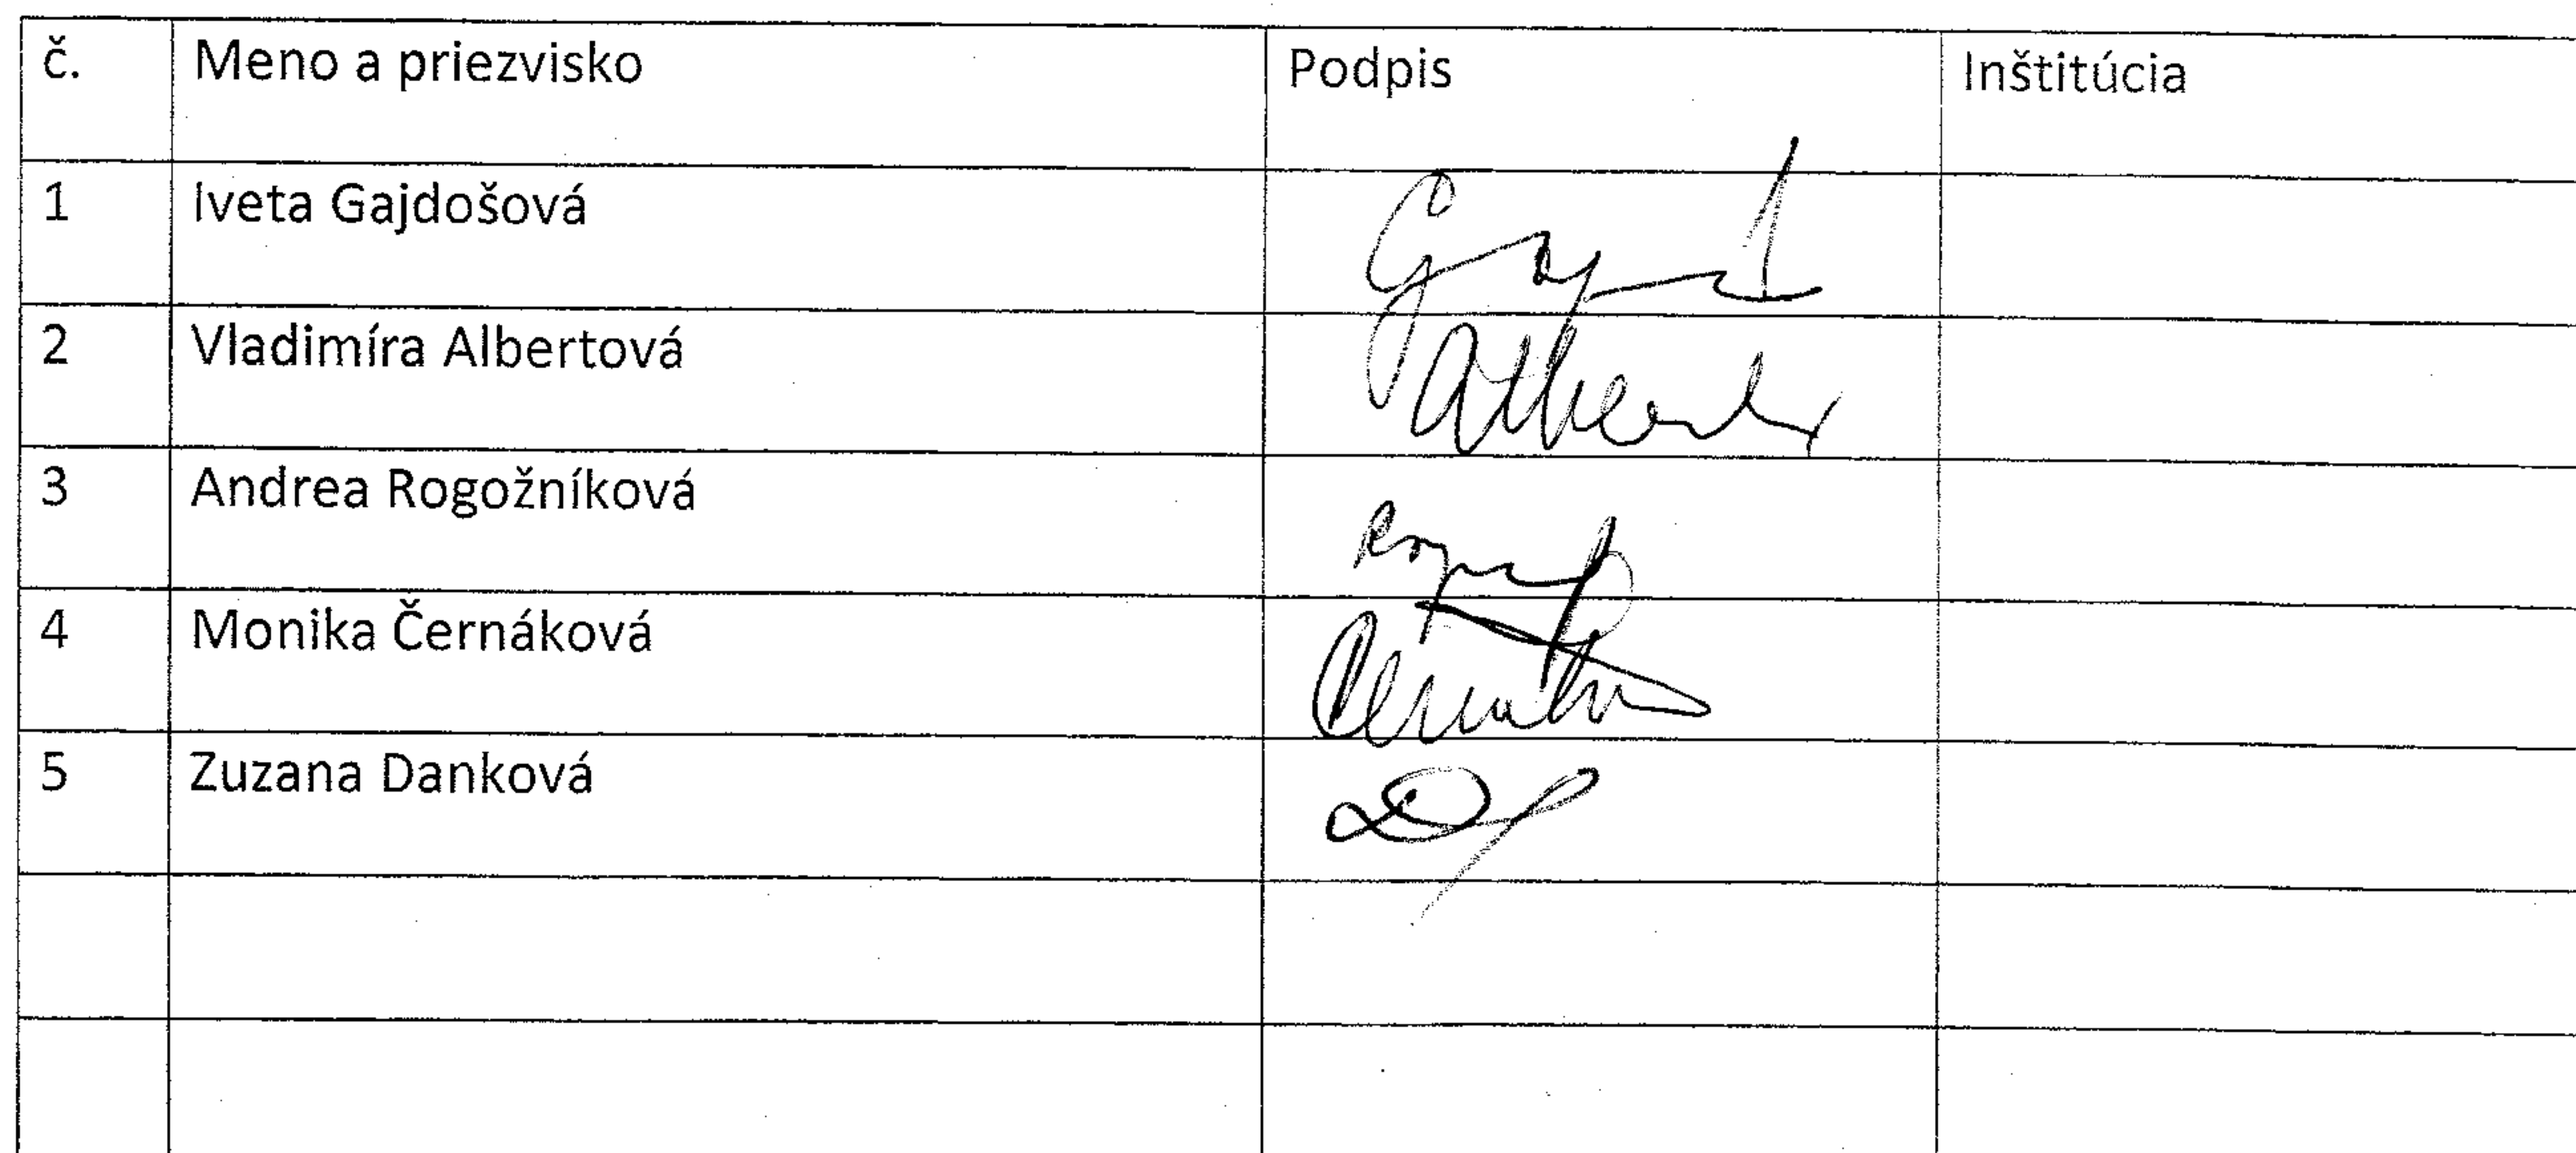 č. Meno a priezvisko Podpis Inštitúcia
1 Iveta Gajdošová
2 Vladimíra Albertová
3 Andrea Rogožníková
4 Monika Černáková
5 Zuzana Danková